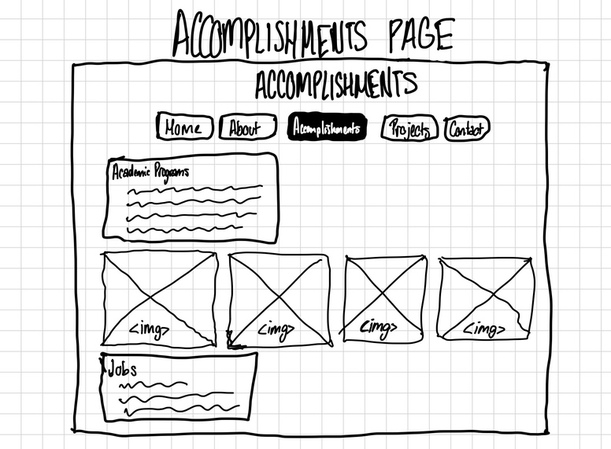 ACCOMPLISHMENTS PAGE
ACCOMPLISHMENTS
Home About Accomplishments Projects Contact
Academic Programs
<img> <img> <img> <img>
Jobs